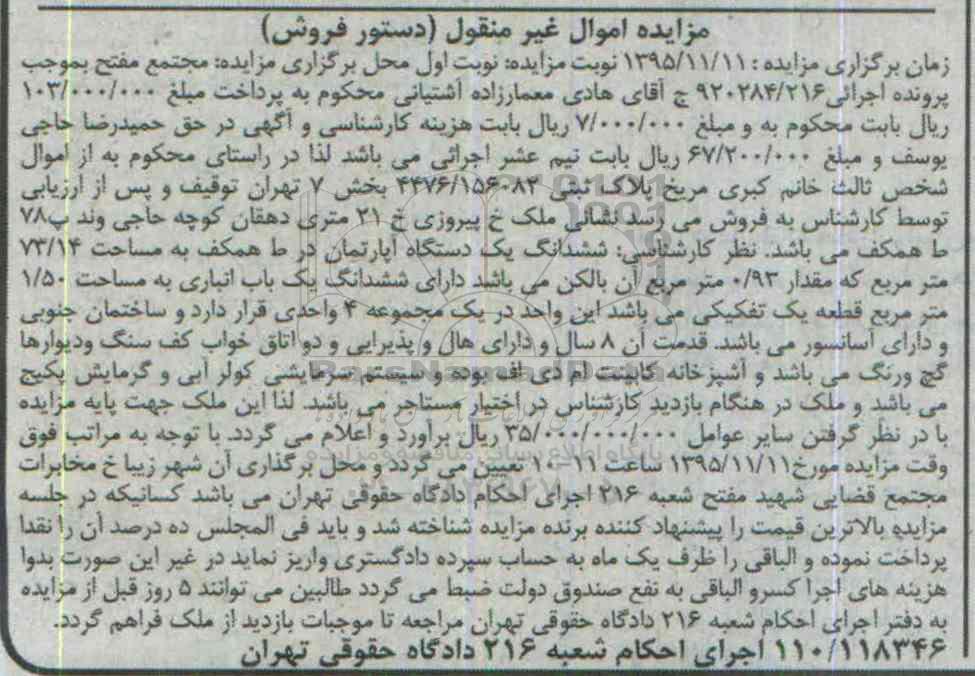 مزایده اموال غیر منقول (دستور فروش)
زمان برگزاری مزایده : ۱۳۹۵/۱۱/۱۱ نوبت مزایده: نوبت اول محل برگزاری مزایده: مجتمع مفتح بموجب
پرونده اجرائی ۹۲۰۲۸۴/۲۱۶ ج آقای هادی معمارزاده آشتیانی محکوم به پرداخت مبلغ ۱۰۳/۰۰۰/۰۰۰
ریال بابت محکوم به و مبلغ ۷/۰۰۰/۰۰۰ ریال بابت هزینه کارشناسی و آگهی در حق حمیدرضا حاجی
یوسف و مبلغ ۶۷/۲۰۰/۰۰۰ ریال بابت نیم عشر اجرائی می باشد لذا در راستای محکوم به از اموال
شخص ثالث خانم کبری مریخ پلاک ثبتی ۴۴۷۶/۱۵۶۰۸۲ بخش ۷ تهران توقیف و پس از ارزیابی
توسط کارشناس به فروش می رسد نشانی ملک خ پیروزی خ ۲۱ متری دهقان کوچه حاجی وند پ۷۸
ط همکف می باشد. نظر کارشناسی: ششدانگ یک دستگاه آپارتمان در ط همکف به مساحت ۷۳/۱۴
متر مربع که مقدار ۰/۹۳ متر مربع آن بالکن می باشد دارای ششدانگ یک باب انباری به مساحت ۱/۵۰
متر مربع قطعه یک تفکیکی می باشد این واحد در یک مجموعه ۴ واحدی قرار دارد و ساختمان جنوبی
و دارای آسانسور می باشد. قدمت آن ۸ سال و دارای هال و پذیرایی و دو اتاق خواب کف سنگ ودیوارها
گچ ورنگ می باشد و آشپزخانه کابینت ام دی اف بوده و سیستم سرمایشی کولر آبی و گرمایش پکیج
می باشد و ملک در هنگام بازدید کارشناس در اختیار مستاجر می باشد. لذا این ملک جهت پایه مزایده
با در نظر گرفتن سایر عوامل ۳۵/۰۰۰/۰۰۰/۰۰۰ ریال برآورد و اعلام می گردد. با توجه به مراتب فوق
وقت مزایده مورخ ۱۳۹۵/۱۱/۱۱ ساعت ۱۱-۱۰ تعیین می گردد و محل برگذاری آن شهر زیبا خ مخابرات
مجتمع قضایی شهید مفتح شعبه ۲۱۶ اجرای احکام دادگاه حقوقی تهران می باشد کسانیکه در جلسه
مزایده بالاترین قیمت را پیشنهاد کننده برنده مزایده شناخته شد و باید فی المجلس ده درصد آن را نقدا
پرداخت نموده و الباقی را ظرف یک ماه به حساب سپرده دادگستری واریز نماید در غیر این صورت بدوا
هزینه های اجرا کسرو الباقی به نفع صندوق دولت ضبط می گردد طالبین می توانند ۵ روز قبل از مزایده
به دفتر اجرای احکام شعبه ۲۱۶ دادگاه حقوقی تهران مراجعه تا موجبات بازدید از ملک فراهم گردد.
۱۱۰/۱۱۸۳۴۶ اجرای احکام شعبه ۲۱۶ دادگاه حقوقی تهران